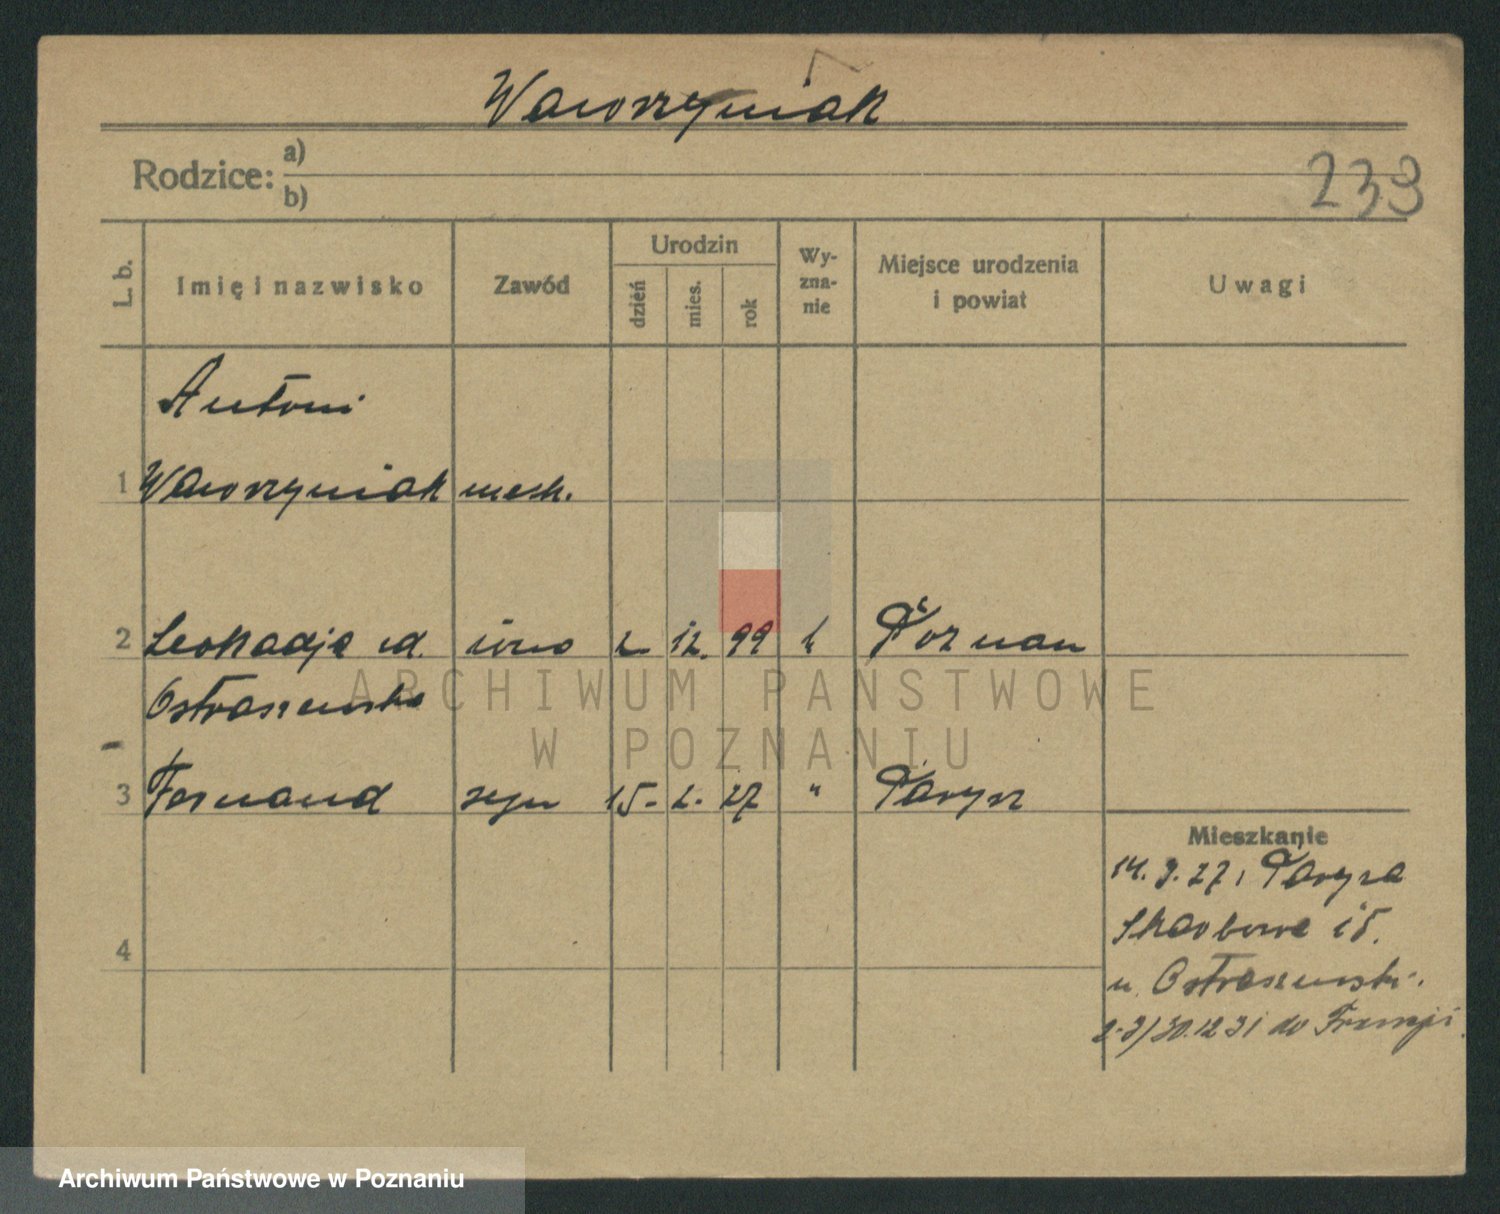 Wawrzyniak
Rodzice: a)
b)
239
L. b.
Imię i nazwisko
Zawód
Urodzin
dzień
mies.
rok
Wy-
zna-
nie
Miejsce urodzenia
i powiat
Uwagi
Antoni
1 Wawrzyniak mech.
2 Leokadja ud. żona 2 12. 99 k Poznań
Ostraszewska
3 Fernand syn 15. 2. 27 " Paryż
Mieszkanie
14. 9. 27 z Paryża
Skarbowa 15.
u. Ostraszewski.
2-3/30.12 31 do Francji
4
ARCHIWUM PAŃSTWOWE
W POZNANIU
Archiwum Państwowe w Poznaniu